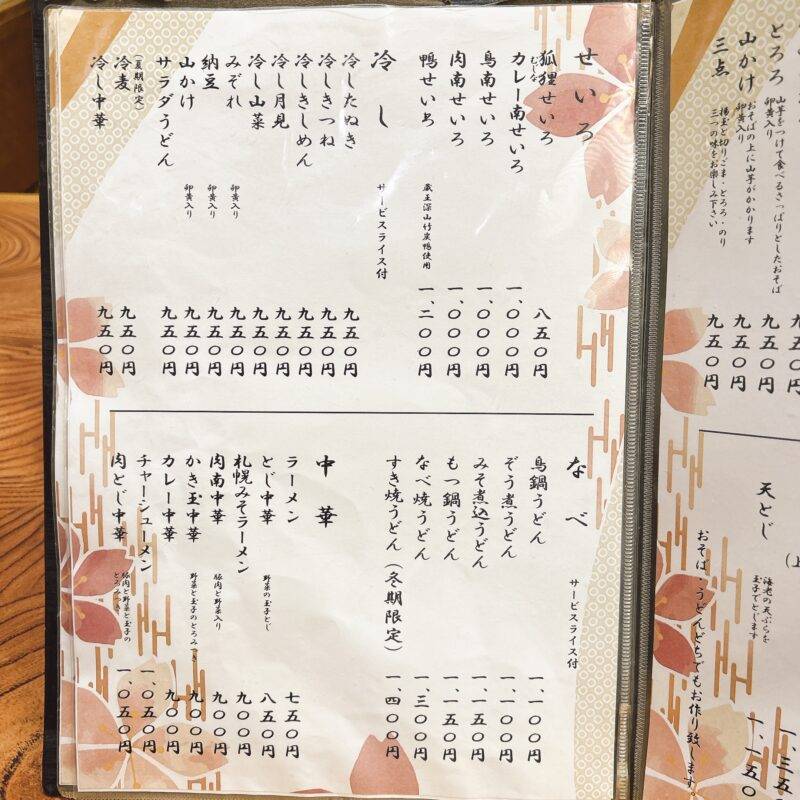 とろろ
山芋をつけて食べるさっぱりとしたおそば
卵黄入り
九五〇円
山かけ
おそばの上に山芋がかかります
卵黄入り
九五〇円
三点
揚玉と切りごま・とろろ・のり
三つの味をお楽しみ下さい
九五〇円
天とじ
海老の天ぷらを
玉子でとじます
一、一五〇
おそば・うどんどちでもお作り致します
せいろ
狐狸せいろ 八五〇円
むじな
カレー南せいろ 一、〇〇〇円
鳥南せいろ 一、〇〇〇円
肉南せいろ 一、〇〇〇円
鴨せいろ 蔵王深山竹炭鴨使用 一、二〇〇円
冷し サービスライス付
冷したぬき 九五〇円
冷しきつね 九五〇円
冷しきしめん 九五〇円
冷し月見 九五〇円
冷し山菜 九五〇円
みぞれ 卵黄入り 九五〇円
納豆 卵黄入り 九五〇円
山かけ 卵黄入り 九五〇円
サラダうどん 九五〇円
(夏期限定)
冷麦 九五〇円
冷し中華 九五〇円
なべ サービスライス付
鳥鍋うどん 一、一〇〇円
ぞう煮うどん 一、一〇〇円
みそ煮込うどん 一、一五〇円
もつ鍋うどん 一、一五〇円
なべ焼うどん 一、三〇〇円
すき焼うどん(冬期限定) 一、四〇〇円
中華
ラーメン 七五〇円
とじ中華 野菜の玉子とじ 八五〇円
札幌みそラーメン 九〇〇円
肉南中華 豚肉と野菜入り 九〇〇円
かき玉中華 野菜と玉子のとろみつき 九〇〇円
カレー中華 九〇〇円
チャーシューメン 一、〇五〇円
肉とじ中華 豚肉と野菜と玉子の
とろみつき 一、〇五〇円